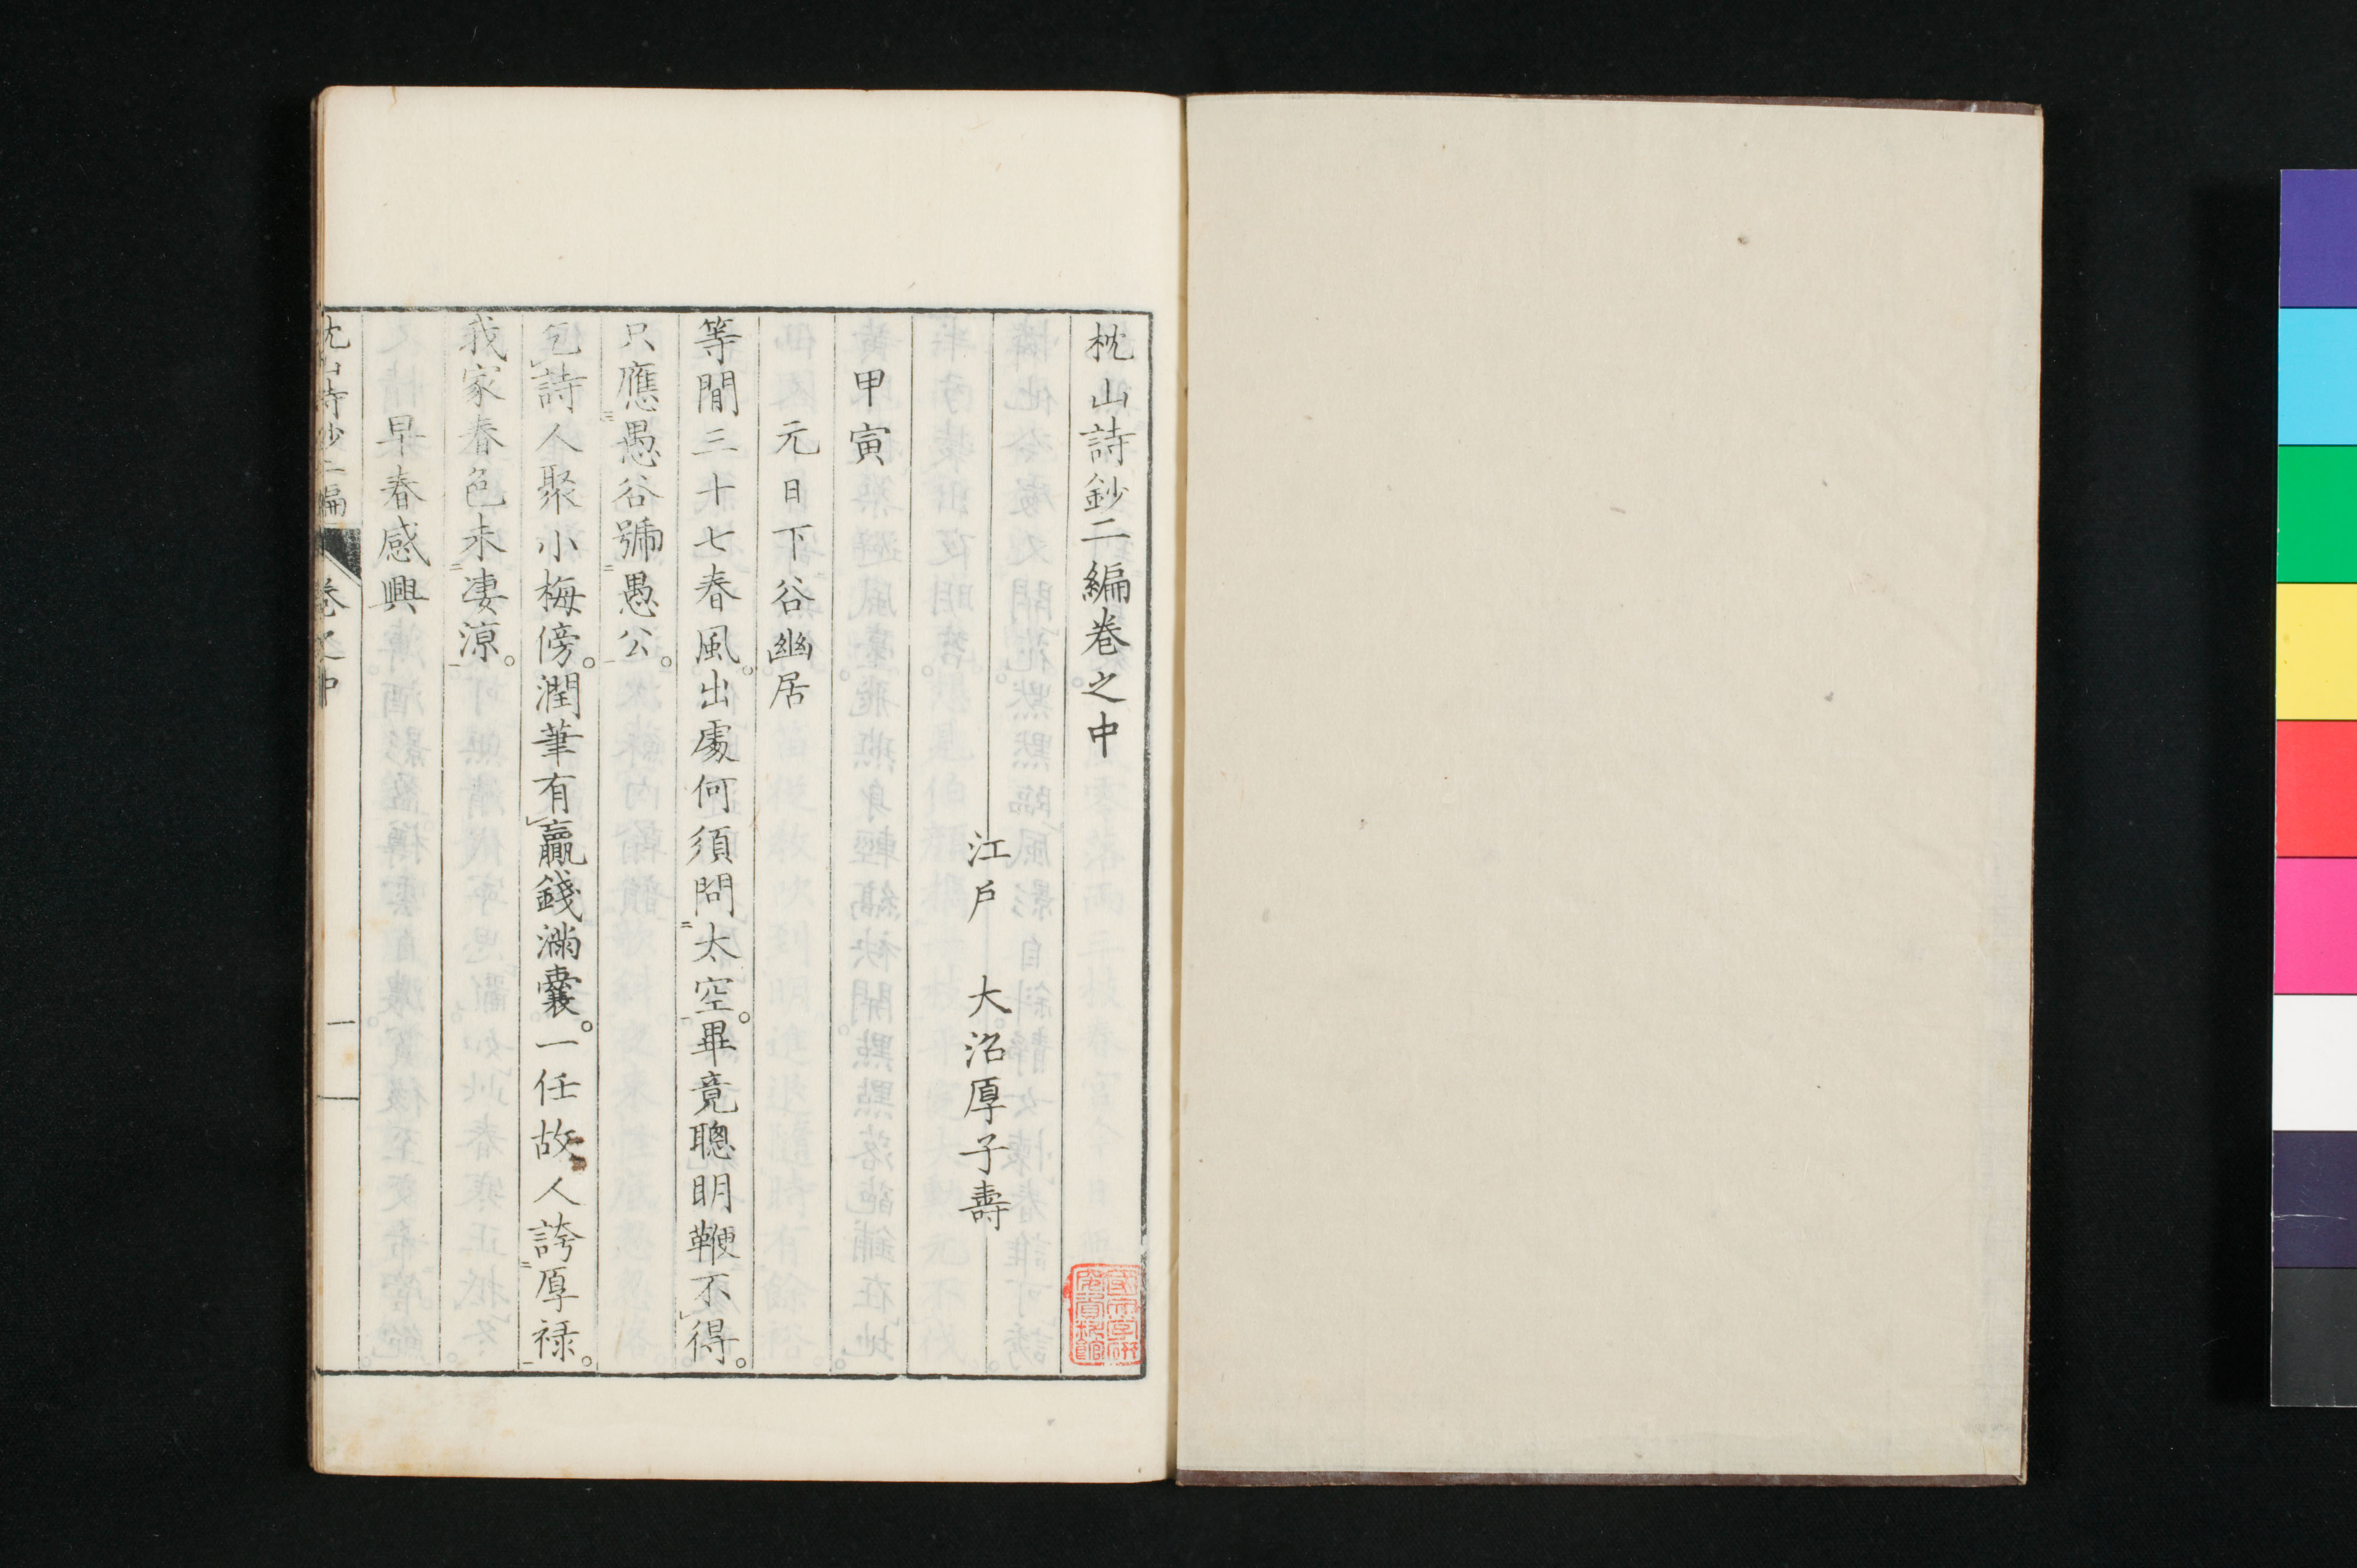 枕山詩鈔二編卷之中
江戶 大沼厚子壽
甲寅
元日下谷幽居
等閒三十七春風。出處何須問太空。畢竟聰明鞭不得。
只應愚谷號愚公。
乞詩人聚小梅傍。潤筆有贏錢滿囊。一任故人誇厚祿。
我家春色未凄凉。
早春感興
枕山詩鈔二編 卷之中 一